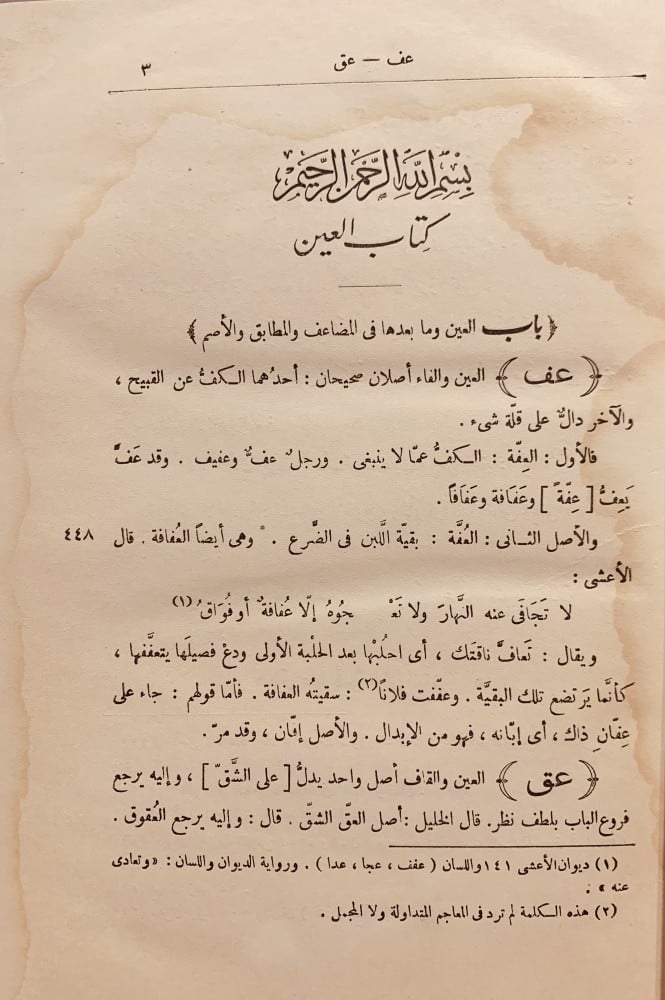 عف – عق ٣
بسم الله الرحمن الرحيم
كتاب العين
﴿ باب العين وما بعدها فى المضاعف والمطابق والأصم ﴾
﴿ عف ﴾ العين والفاء أصلان صحيحان : أحدُهما الكفُّ عن القبيح ،
والآخر دالٌّ على قلّة شىء .
فالأول : العِفّة : الكفُّ عمّا لا ينبغى . ورجلٌ عفٌّ وعفيف . وقد عَفَّ
يَعِفُّ [ عِفّةً ] وعَفَافة وعَفَافًا .
والأصل الثانى : العُفَّة : بقيّة اللَّبن فى الضَّرع . * وهى أيضاً العُفافة . قال ٤٤٨
الأعشى :
لا تَجَافَى عنه النَّهارَ ولا تَعْجُوهُ إلّا عُفافةٌ أو فُوَاقُ (١)
ويقال : تَعافَّ ناقتَك ، أى احلُبْها بعد الحلْبة الأولى ودعْ فصيلَها يتعفَّفها ،
كأنَّما يَرتضع تلك البقيَّة . وعفّفت فلاناً (٢) : سقيتُه العفافة . فأمّا قولهم : جاء على
عِفّانِ ذاك ، أى إبّانه ، فهو من الإبدال . والأصل إفّان ، وقد مرّ .
﴿ عق ﴾ العين والقاف أصل واحد يدلُّ [ على الشَّقّ ] ، وإليه يرجع
فروع الباب بلطف نظر. قال الخليل : أصل العقّ الشقّ . قال : وإليه يرجع العُقوق .
(١) ديوان الأعشى ١٤١ واللسان ( عفف ، عجا ، عدا ) . ورواية الديوان واللسان : « وتعادى
عنه » .
(٢) هذه الكلمة لم ترد فى المعاجم المتداولة ولا المجمل .